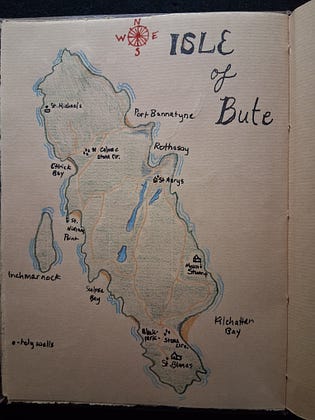 N
W E
S
ISLE
of
Bute
St. Michaels
Port Bannatyne
St. Colmac
Stone Cir.
Rothesay
Ettrick
Bay
St. Marys
St.
Ninians
Point
Inchmarnock
Scalpsie
Bay
Mount
Stuart
Kilchatten
Bay
Black-
park-
Stone
Circ.
St. Blanes
o-holy wells